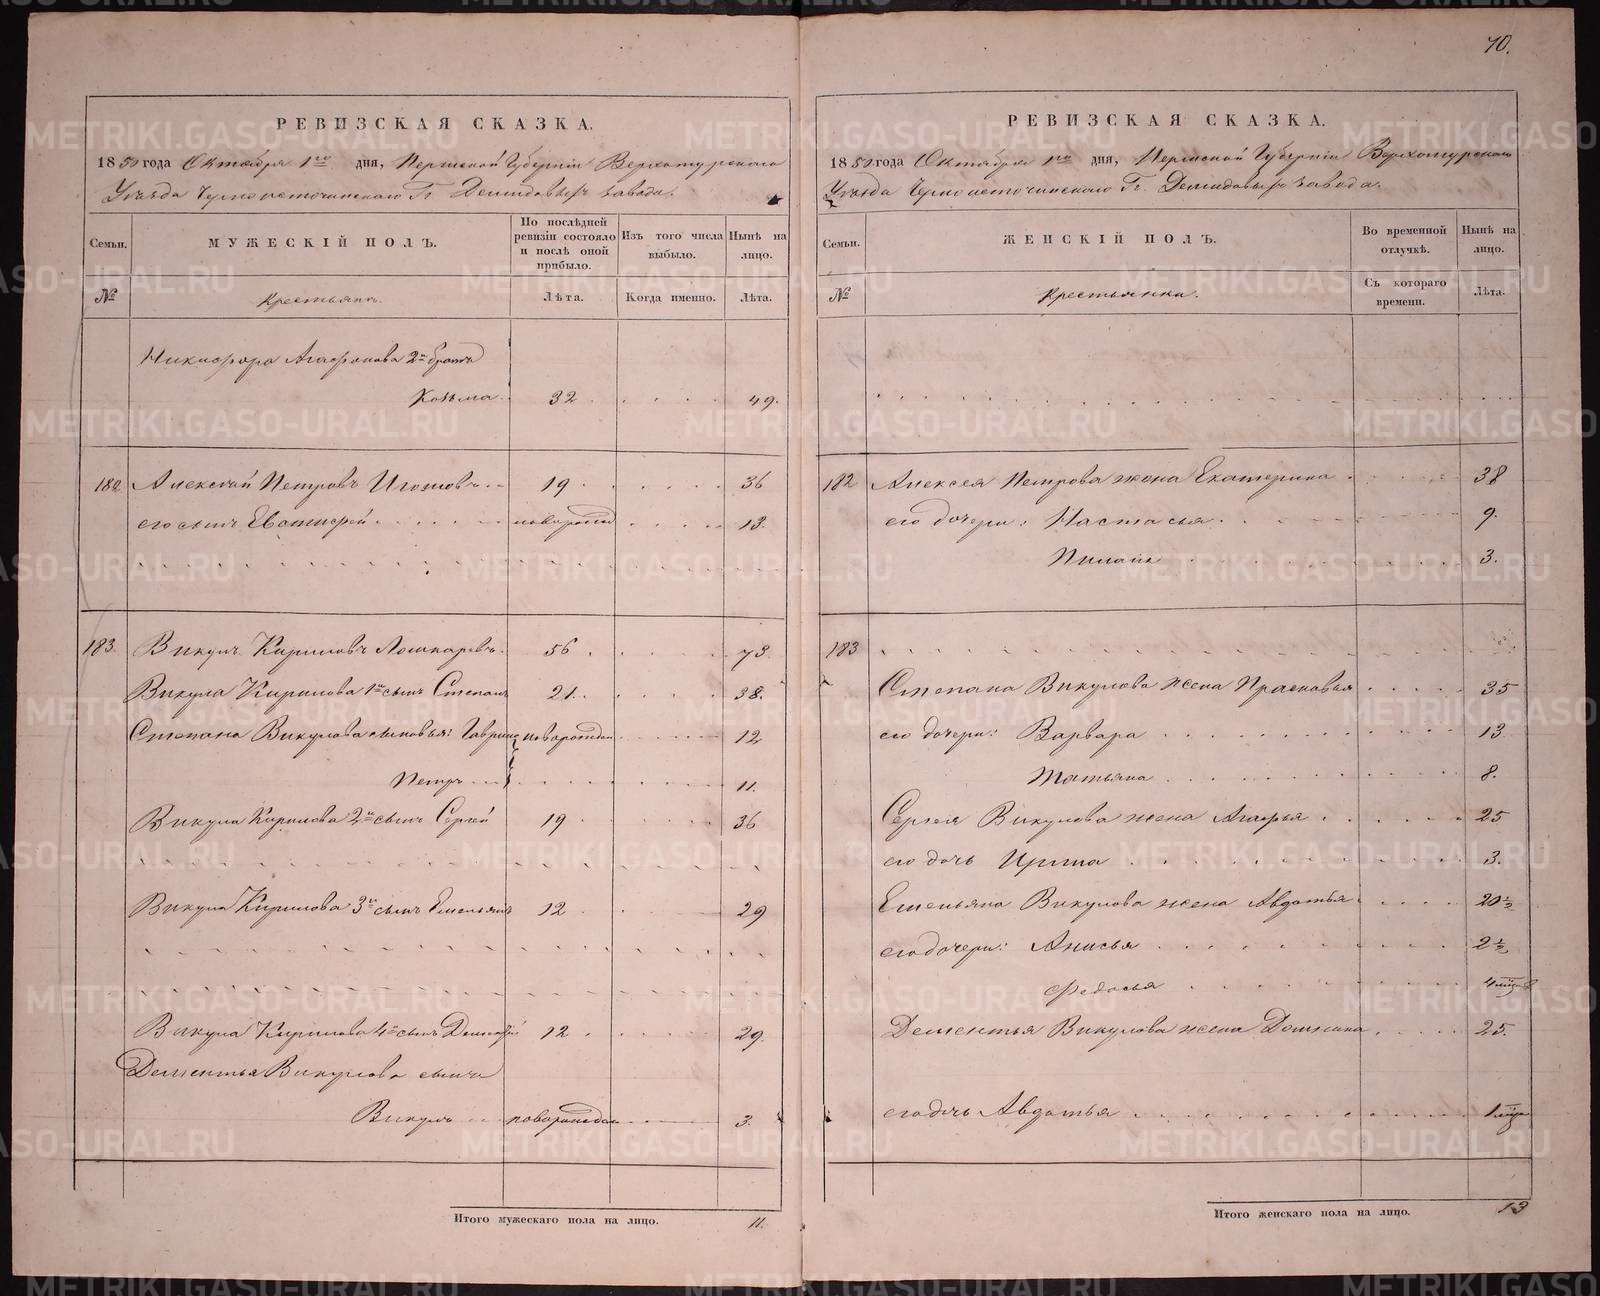 70.
РЕВИЗСКАЯ СКАЗКА.
1850 года Октября 1го дня, Пермской Губернiи Верхотурскаго
Уѣзда Черноисточинскаго Гг. Демидовыхъ завода.
Семьи.
МУЖЕСКІЙ ПОЛЪ.
По послѣдней ревизіи состояло и послѣ оной прибыло.
Изъ того числа выбыло.
Нынѣ на лицо.
№
Крестьяне.
Лѣта.
Когда именно.
Лѣта.
Никифора Агафонова 2й братъ
Козьма 32 49.
182 Алексѣй Петровъ 19 36
его сынъ Евстифей новорожд 13.
183 Викулъ Кириловъ Лошкаревъ 56 73
Викула Кирилова 1й сынъ Степанъ 21 38.
Степана Викулова сыновья: Гаврила новорожден 12
Петръ 11.
Викула Кирилова 2й сынъ Сергей 19 36
Викула Кирилова 3й сынъ Емельянъ 12 29
Викула Кирилова 4й сынъ Дементей 12 29.
Дементья Викулова сынъ
Викулъ новорожден 3.
Итого мужескаго пола на лицо. 11.
РЕВИЗСКАЯ СКАЗКА.
1850 года Октября 1го дня, Пермской Губернiи Верхотурскаго
Уѣзда Черноисточинскаго Гг. Демидовыхъ завода.
Семьи.
ЖЕНСКІЙ ПОЛЪ.
Во временной отлучкѣ.
Нынѣ на лицо.
№
Крестьянки.
Съ котораго времени.
Лѣта.
182 Алексея Петрова жена Екатерина 38
его дочери: Настасья 9.
3.
183
Степана Викулова жена Прасковья 35
его дочери: Варвара 13
Татьяна 8.
Сергея Викулова жена Агафья 25
его дочь Ирина 3.
Емельяна Викулова жена Авдотья 20 ½
его дочери: Анисья 2 ½
Федосья 4
Дементья Викулова жена Домнина 25.
его дочь Авдотья 1
Итого женскаго пола на лицо. 13
METRIKI.GASO-URAL.RU